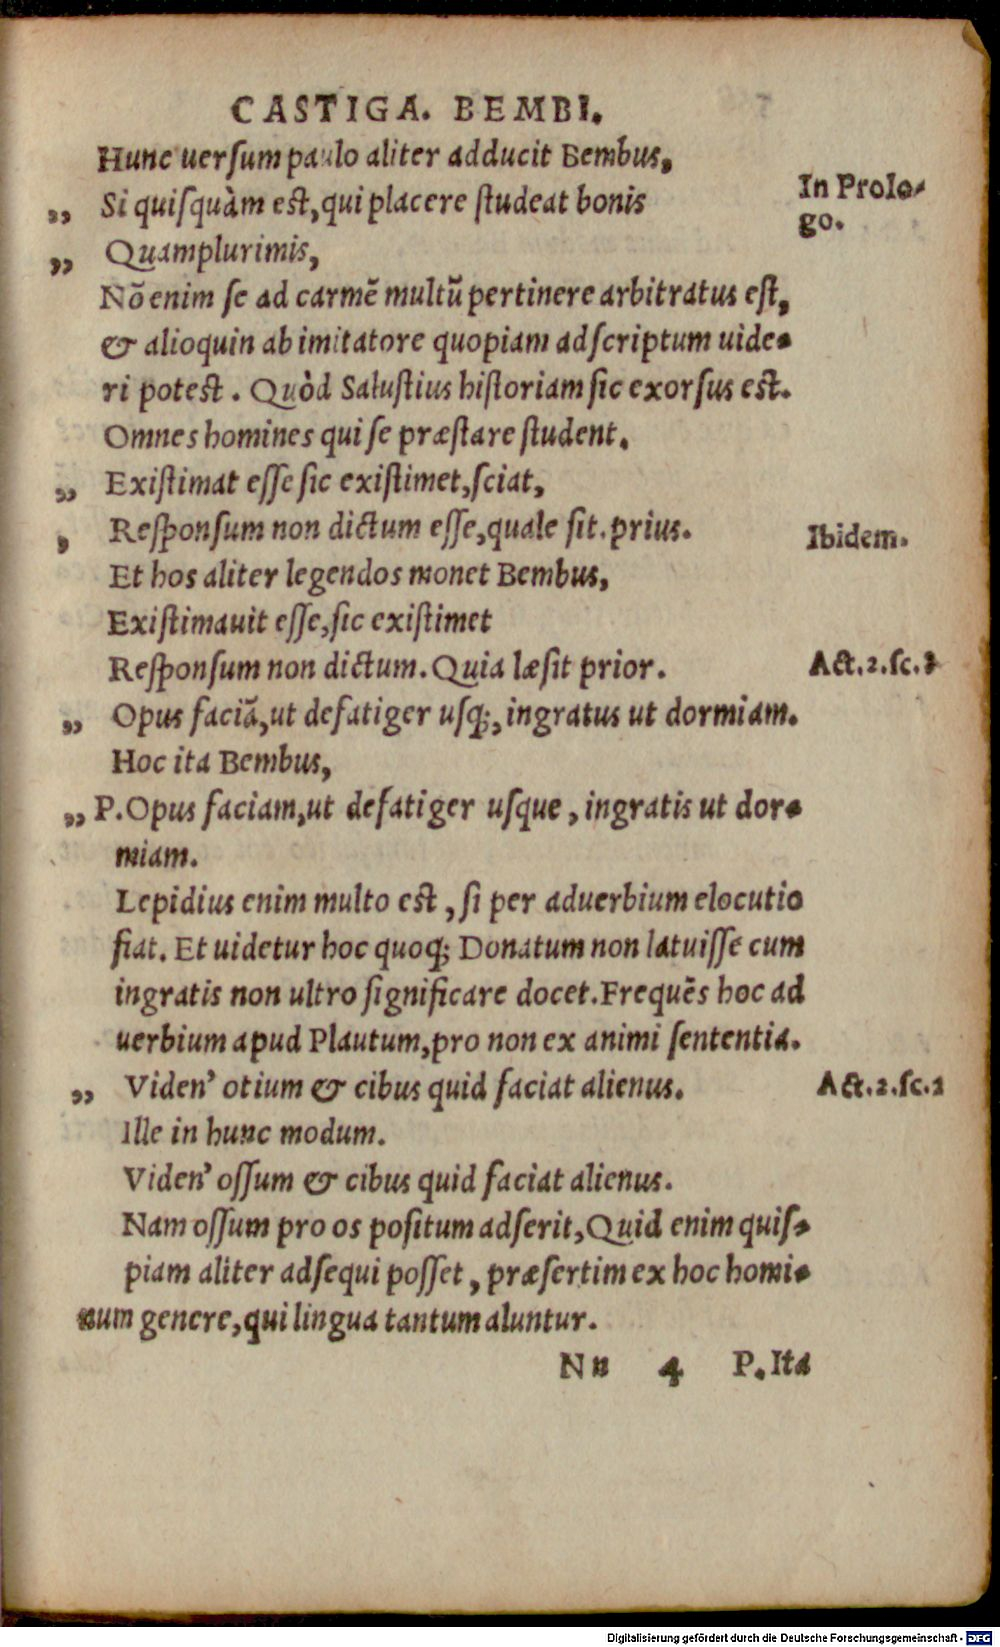 CASTIGA. BEMBI.
Hunc uersum paulo aliter adducit Bembus,
In Prolo-
go.
„ Si quisquàm est, qui placere studeat bonis
„ Quamplurimis,
Nõ enim se ad carmẽ multũ pertinere arbitratus est,
& alioquin ab imitatore quopiam adscriptum uide-
ri potest. Quòd Salustius historiam sic exorsus est.
Omnes homines qui se præstare student.
„ Existimat esse sic existimet, sciat,
, Responsum non dictum esse, quale sit. prius.
Ibidem.
Et hos aliter legendos monet Bembus,
Existimauit esse, sic existimet
Responsum non dictum. Quia læsit prior.
Act.2.sc.3
„ Opus faciã, ut defatiger usq;, ingratus ut dormiam.
Hoc ita Bembus,
„ P. Opus faciam, ut defatiger usque, ingratis ut dor-
miam.
Lepidius enim multo est, si per aduerbium elocutio
fiat. Et uidetur hoc quoq; Donatum non latuisse cum
ingratis non ultro significare docet. Frequẽs hoc ad
uerbium apud Plautum, pro non ex animi sententia.
„ Viden' otium & cibus quid faciat alienus.
Act.2.sc.2
Ille in hunc modum.
Viden' ossum & cibus quid faciat alienus.
Nam ossum pro os positum adserit, Quid enim quis-
piam aliter adsequi posset, præsertim ex hoc homi-
num genere, qui lingua tantum aluntur.
Nn 4 P. Ita
Digitalisierung gefördert durch die Deutsche Forschungsgemeinschaft - DFG